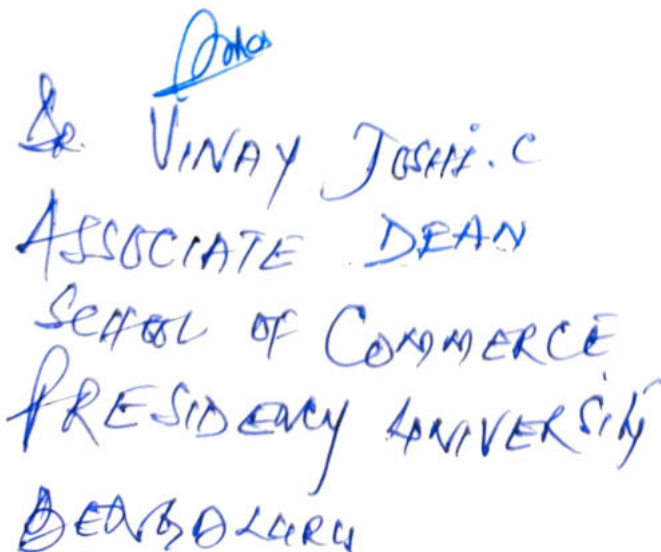 Dr. VINAY JOSHI. C
ASSOCIATE DEAN
SCHOOL OF COMMERCE
PRESIDENCY UNIVERSITY
BENGALURU